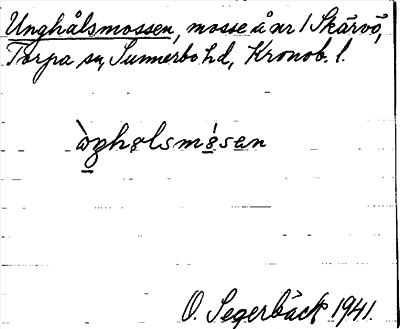 Unghålsmossen, mosse å nr 1 Skärvö,
Torpa sn, Sunnerbo hd, Kronob. l.
O. Segerbäck 1941.